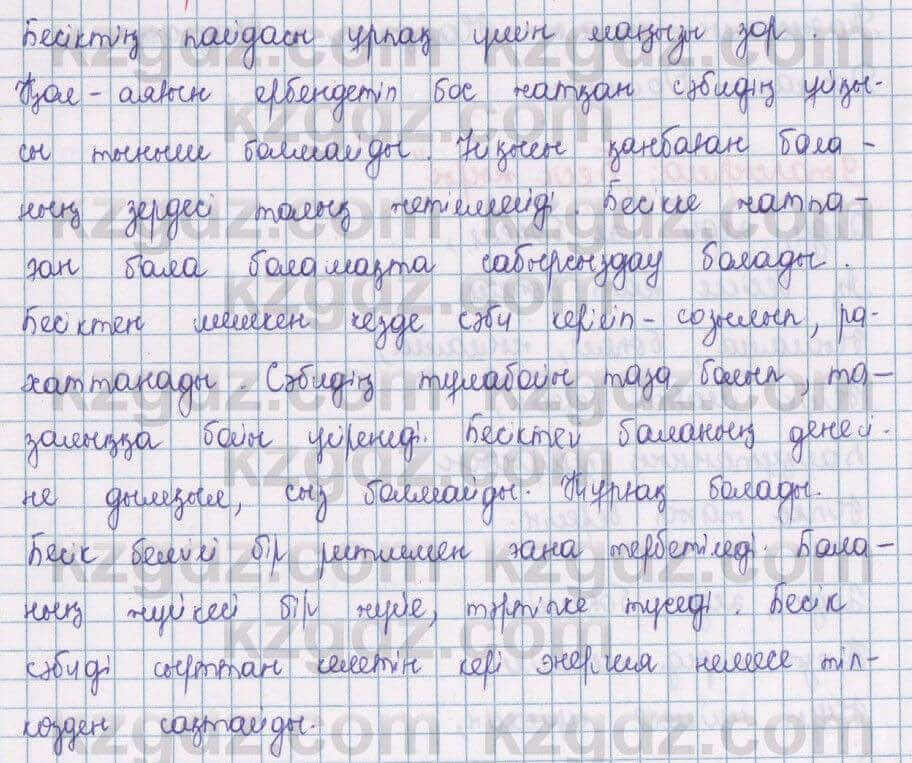 Бесіктің пайдасы ұрпақ үшін маңызы зор.
Қол-аяғын ербеңдетіп бос жатқан сәбидің ұйқы-
сы тыныш болмайды. Ұйқысы қанбаған бала-
ның зердесі толық жетілмейді. Бесікке жатпа-
ған бала болашақта сабырсыздау болады.
Бесіктен шешкен кезде сәби керіліп-созылып, ра-
хаттанады. Сәбидің тұлабойы таза болып, та-
залыққа бойы үйренеді. Бесіктегі баланың денесі-
не дымқыл, сыз болмайды. Құрғақ болады.
Бесік белгілі бір ритммен ғана тербетіледі. Бала-
ның жүйкесі бір жүйе, тәртіпке түседі. Бесік
сәбиді сырттан келетін кері энергия немесе тіл-
көзден сақтайды.
kzgdz.com